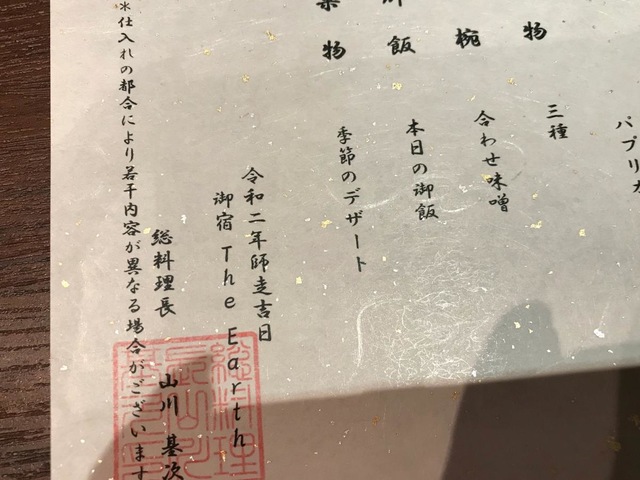 パプリカ
物
三種
椀
合わせ味噌
飯
本日の御飯
物
季節のデザート
令和二年師走吉日
御宿 The Earth
総料理長 山川 基次
※仕入れの都合により若干内容が異なる場合がございます